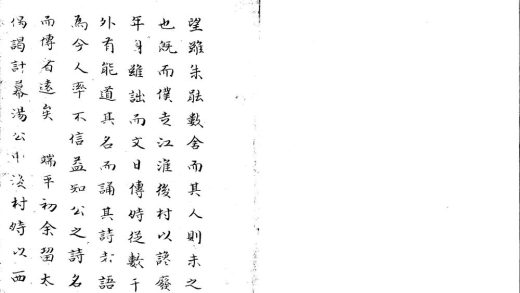 望雖朱㪷數舍而其人則未之
也既而僕走江淮後村以謗廢
年身雖詘而文日傳時從數千
外有能道其名而誦其詩者語
馬今人率不信益知公之詩名
而傳者遠矣 端平初余留太
偈謁計幕湯公中後村時以西